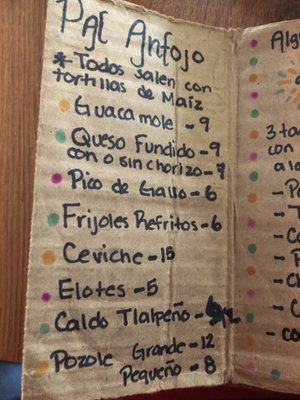 Pal Antojo
* Todos salen con
tortillas de Maíz
Guacamole - 9
Queso Fundido - 9
con o sin chorizo - 9
Pico de Gallo - 6
Frijoles Refritos - 6
Ceviche - 15
Elotes - 5
Caldo Tlalpeño - 6/12
Pozole Grande - 12
Pequeño - 8
3 ta
con
a la